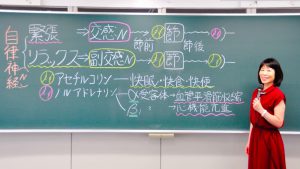 自律神経
緊張 ⇒ 交感N 節
節前 節後
リラックス ⇒ 副交感N 節
アセチルコリン 快眠・快食・快便
ノルアドレナリン α受容体→血管平滑筋収縮
β₁ 〃 →心機能亢進